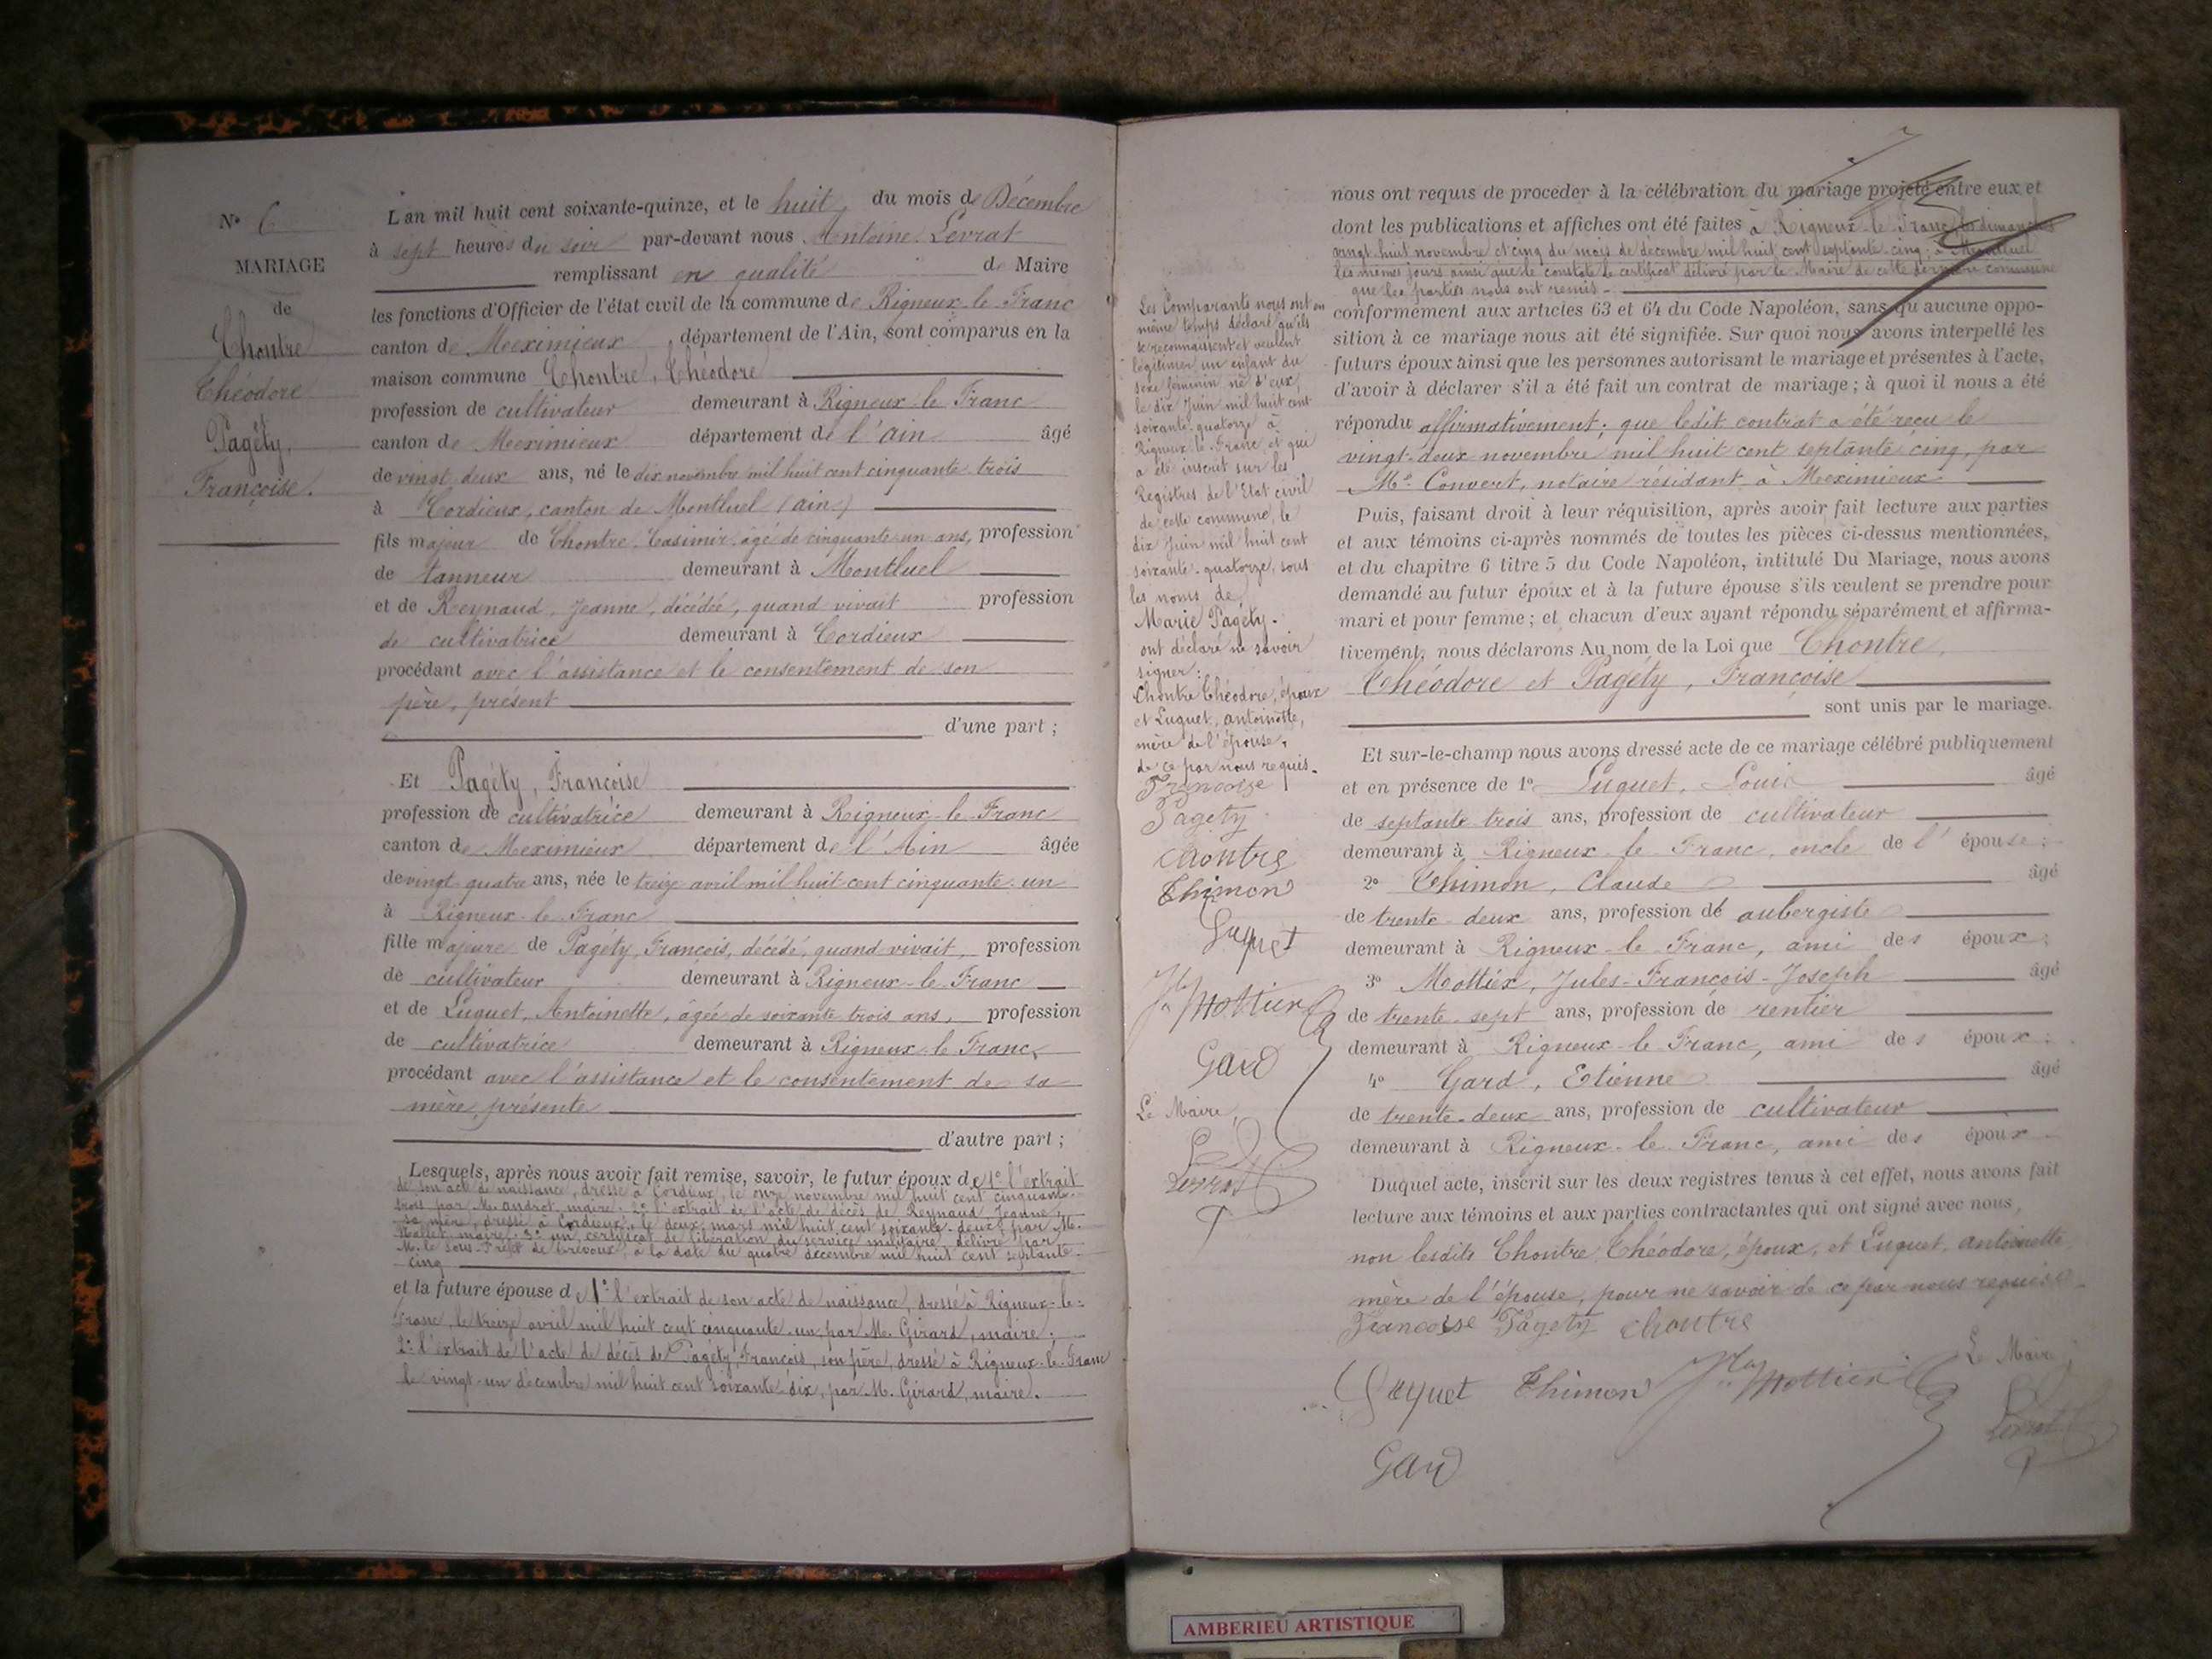 N° 6
MARIAGE
de
Chontre
Théodore
Pagéty,
Françoise.
L'an mil huit cent soixante-quinze, et le huit du mois de Décembre
à sept heures du soir par-devant nous Antoine Levrat
remplissant en qualité de Maire
les fonctions d'Officier de l'état civil de la commune de Rigneux-le-Franc
canton de Meximieux département de l'Ain, sont comparus en la
maison commune Chontre, Théodore
profession de cultivateur demeurant à Rigneux-le-Franc
canton de Meximieux département de l'ain âgé
de vingt-deux ans, né le dix novembre mil huit cent cinquante-trois
à Cordieux, canton de Montluel (ain)
fils majeur de Chontre, Casimir, âgé de cinquante-un ans, profession
de tanneur demeurant à Montluel
et de Reynaud, Jeanne, décédée, quand vivait profession
de cultivatrice demeurant à Cordieux
procédant avec l'assistance et le consentement de son
père, présent
d'une part ;
Et Pagéty, Françoise
profession de cultivatrice demeurant à Rigneux-le-Franc
canton de Meximieux département de l'Ain âgée
de vingt-quatre ans, née le treize avril mil huit cent cinquante-un
à Rigneux-le-Franc
fille majeure de Pagéty, François, décédé, quand vivait, profession
de cultivateur demeurant à Rigneux-le-Franc
et de Luquet, Antoinette, âgée de soixante-trois ans, profession
de cultivatrice demeurant à Rigneux-le-Franc,
procédant avec l'assistance et le consentement de sa
mère, présente
d'autre part ;
Lesquels, après nous avoir fait remise, savoir, le futur époux de 1° l'extrait
de son acte de naissance, dressé à Cordieux, le onze novembre mil huit cent cinquante-
trois par M. Androt, maire. 2° l'extrait de l'acte de décès de Reynaud Jeanne,
sa mère, dressé à Cordieux, le deux mars mil huit cent soixante-deux, par M.
maire. 3° un certificat de libération du service militaire, délivré par
M. le Sous-Préfet de Trévoux, à la date du quatre décembre mil huit cent septante-
cinq
et la future épouse de 1° l'extrait de son acte de naissance, dressé à Rigneux-le-
Franc, le treize avril mil huit cent cinquante-un, par M. Girard, maire ;
2° l'extrait de l'acte de décès de Pagéty, François, son père, dressé à Rigneux-le-Franc
le vingt-un décembre mil huit cent soixante-dix, par M. Girard, maire.
Les Comparants nous ont en
même temps déclaré qu'ils
reconnaissent et veulent
légitimer un enfant du
sexe féminin né d'eux,
le dix Juin mil huit cent
soixante-quatorze à
Rigneux-le-Franc, et qui
a été inscrit sur les
Registres de l'Etat civil
de cette commune, le
dix Juin mil huit cent
soixante-quatorze, sous
les noms de
Marie Pagéty.
ont déclaré ne savoir
signer :
Chontre Théodore, époux
et Luquet, antoinette,
mère de l'épouse,
de ce par nous requis.
Françoise
Pagety
chontre
Thimon
Luquet
Jles Mottier
Gard
Le Maire,
Levrat
nous ont requis de procéder à la célébration du mariage projeté entre eux et
dont les publications et affiches ont été faites à Rigneux-le-Franc, les dimanches
vingt-huit novembre et cinq du mois de décembre mil huit cent septante-cinq ; à Montluel
les mêmes jours ainsi que le constate le certificat délivré par le Maire de cette dernière commune
que les parties nous ont remis -
conformément aux articles 63 et 64 du Code Napoléon, sans qu'aucune oppo-
sition à ce mariage nous ait été signifiée. Sur quoi nous avons interpellé les
futurs époux ainsi que les personnes autorisant le mariage et présentes à l'acte,
d'avoir à déclarer s'il a été fait un contrat de mariage ; à quoi il nous a été
répondu affirmativement ; que ledit contrat a été reçu le
vingt-deux novembre mil huit cent septante cinq, par
Me Convert, notaire résidant à Meximieux
Puis, faisant droit à leur réquisition, après avoir fait lecture aux parties
et aux témoins ci-après nommés de toutes les pièces ci-dessus mentionnées,
et du chapitre 6 titre 5 du Code Napoléon, intitulé Du Mariage, nous avons
demandé au futur époux et à la future épouse s'ils veulent se prendre pour
mari et pour femme ; et chacun d'eux ayant répondu séparément et affirma-
tivement, nous déclarons Au nom de la Loi que Chontre,
Théodore et Pagéty, Françoise
sont unis par le mariage.
Et sur-le-champ nous avons dressé acte de ce mariage célébré publiquement
et en présence de 1° Luquet, Louis âgé
de septante-trois ans, profession de cultivateur
demeurant à Rigneux-le-Franc, oncle de l'épouse ;
2° Thimon, Claude âgé
de trente-deux ans, profession de aubergiste
demeurant à Rigneux-le-Franc, ami des époux ;
3° Mottier, Jules-François-Joseph âgé
de trente-sept ans, profession de rentier
demeurant à Rigneux-le-Franc, ami des époux ;
4° Gard, Etienne âgé
de trente-deux ans, profession de cultivateur
demeurant à Rigneux-le-Franc, ami des époux.
Duquel acte, inscrit sur les deux registres tenus à cet effet, nous avons fait
lecture aux témoins et aux parties contractantes qui ont signé avec nous,
non lesdits Chontre Théodore, époux, et Luquet, antoinette
mère de l'épouse, pour ne savoir de ce par nous requise.
Francoise Pagety chontre
Luquet Thimon Jles Mottier Le Maire,
Levrat
Gard
AMBERIEU ARTISTIQUE